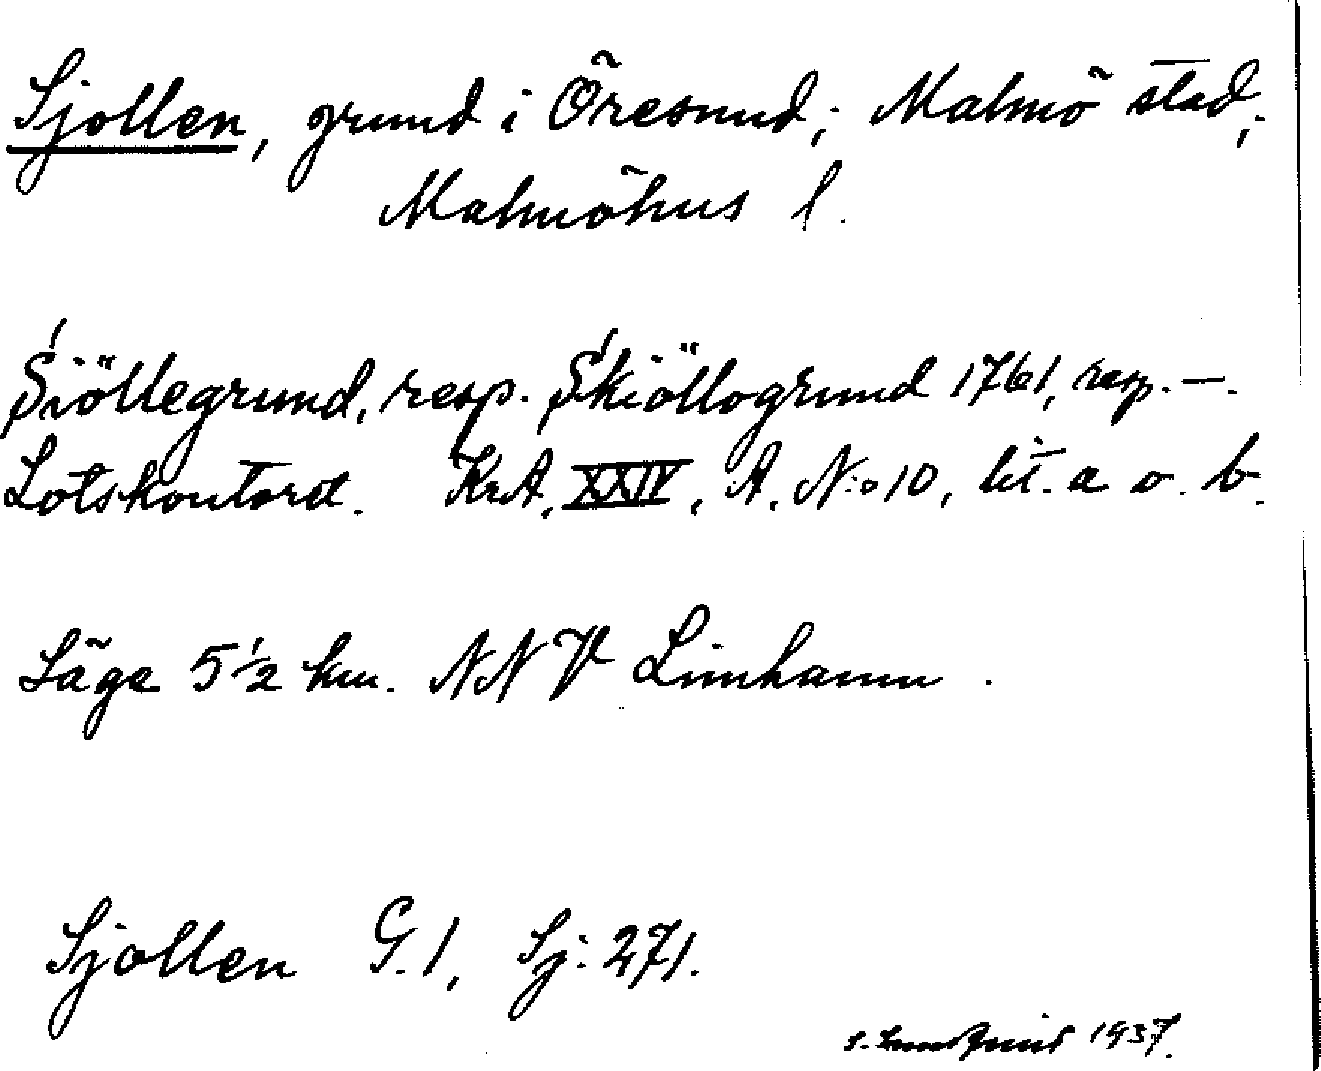 Sjollen, grund i Öresund; Malmö stad;
Malmöhus l.
Siöllegrund, resp. Skiöllogrund 1761, resp. —.
Lotskontoret. KrA, XXIV, A. N:o 10, lit. a o. b.
Läge 5 1/2 km. NNV Limhamn.
Sjollen G. 1, Sj: 271.
1937.